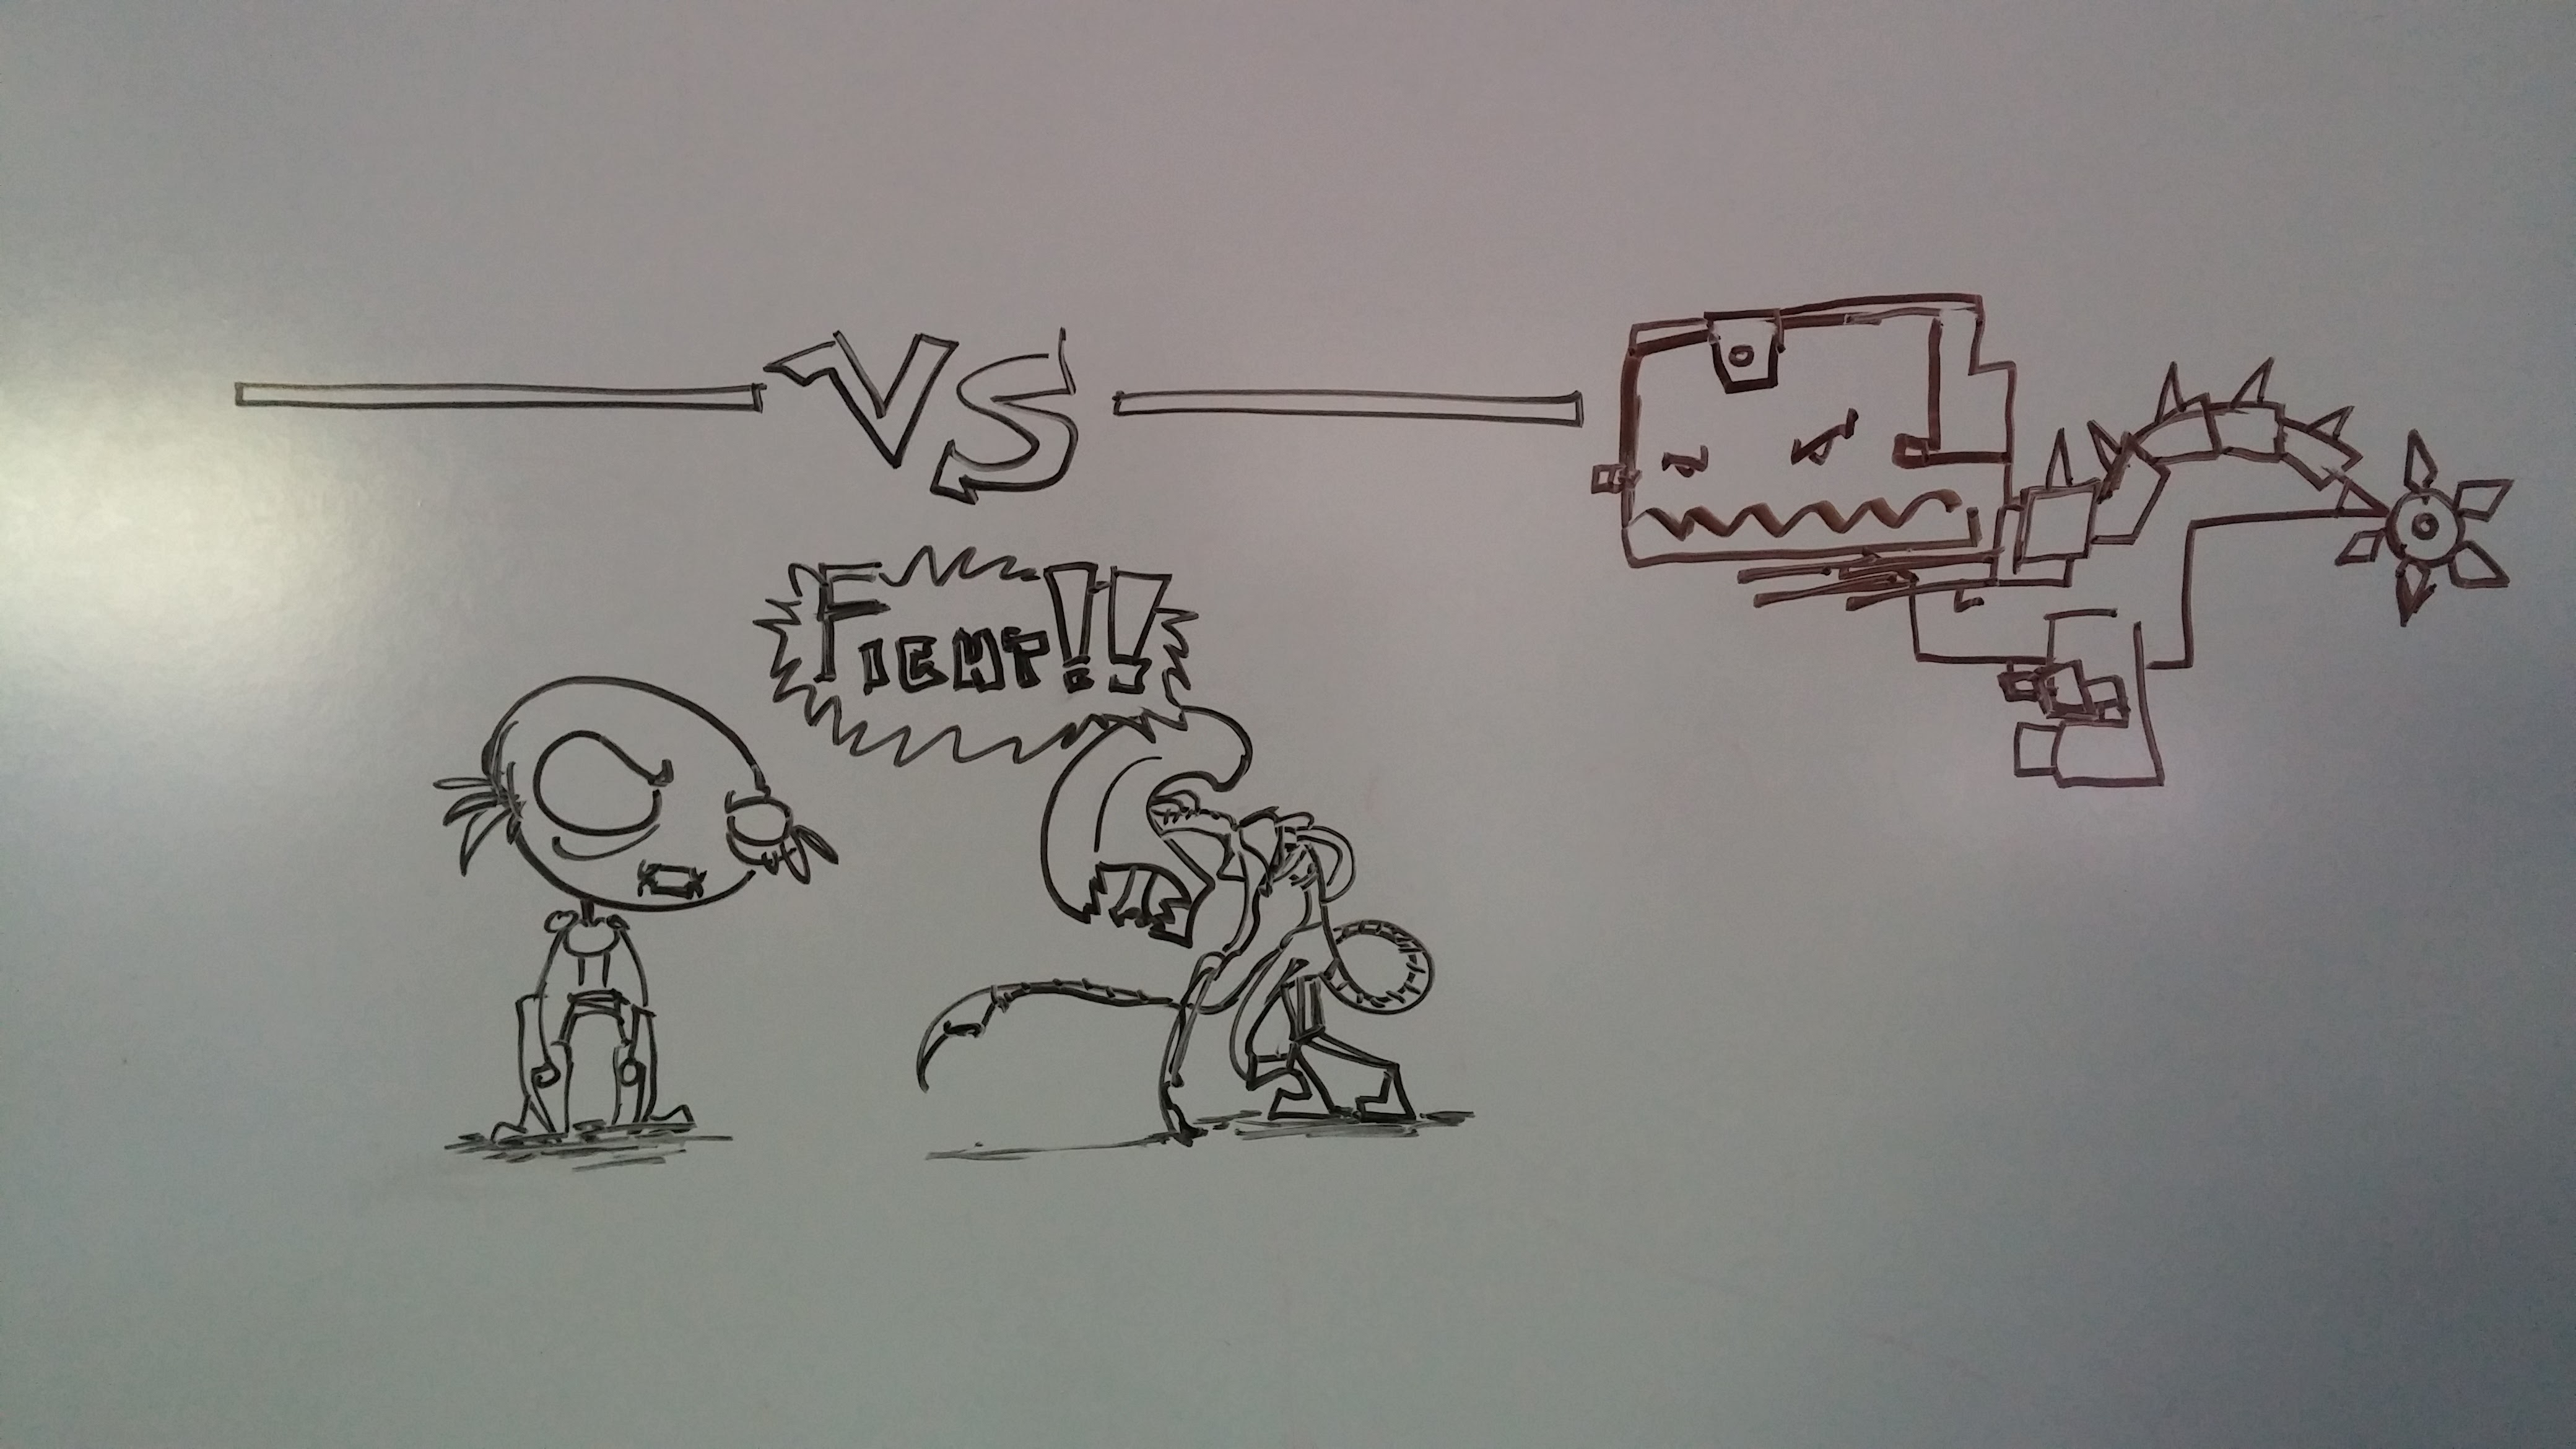 VS
FIGHT!!